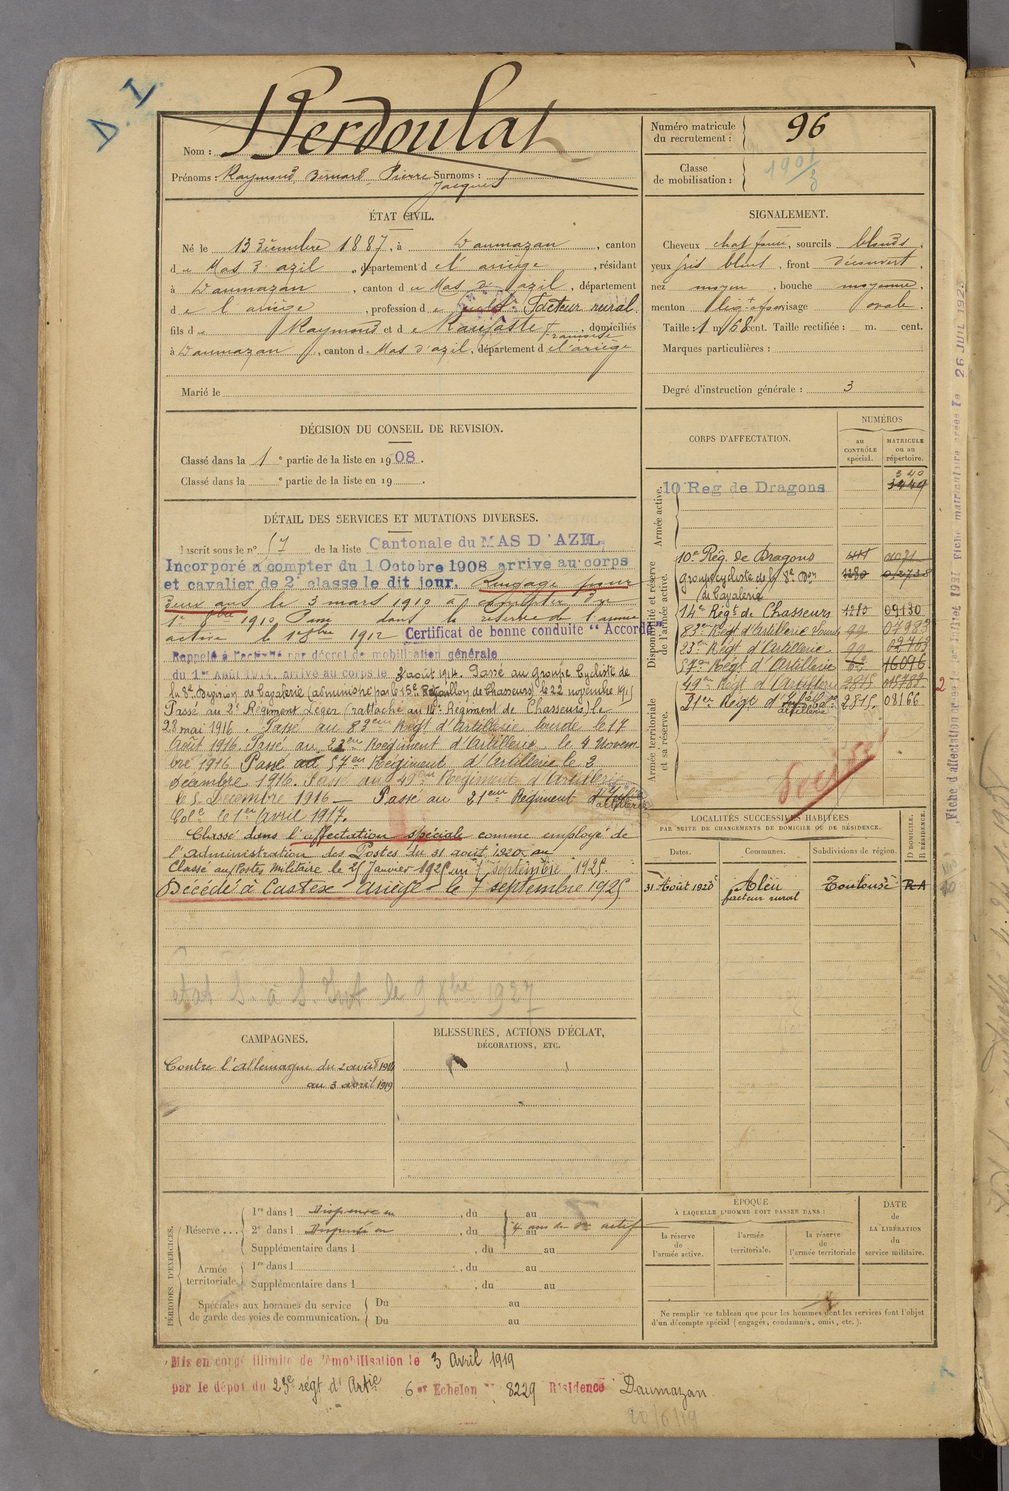 D. I.
Nom : Berdoulat
Prénoms : Raymond Bernard Pierre Surnoms :
Jacques
Numéro matricule
du recrutement : 96
Classe
de mobilisation :
ÉTAT CIVIL.
Né le 13 Décembre 1887, à Daumazan, canton
d u Mas d'azil, département d e l'ariège, résidant
à Daumazan, canton du Mas d'azil, département
d e l'ariège, profession de Facteur rural
fils de Raymond et de
Françoise, domiciliés
à Daumazan, canton d. Mas d'azil, département d el'ariège
Marié le
SIGNALEMENT.
Cheveux chat foncé, sourcils blonds,
yeux gris bleut, front découvert,
nez moyen, bouche moyenne,
menton visage ovale
Taille : 1 m 68 cent. Taille rectifiée : m. cent.
Marques particulières :
Degré d'instruction générale : 3
DÉCISION DU CONSEIL DE REVISION.
Classé dans la 1e partie de la liste en 1908.
Classé dans la e partie de la liste en 19 .
CORPS D'AFFECTATION.
NUMÉROS
au
CONTRÔLE
spécial.
MATRICULE
ou au
répertoire.
Armée active.
10e Reg de Dragons 3449
340
Disponibilité et réserve
de l'armée active.
10e Rég. de Dragons
groupe cycliste de la 8e Don
de Cavalerie
14e Régt de Chasseurs 1210 09130
83e Regt d'Artillerie Lourde 99 07983
23e Régt d'Artillerie 99 02763
57e Regt d'Artillerie 16096
49e Régt d'Artillerie 2815
31er Régt d'
artillerie 2815. 08166
Armée territoriale
et sa réserve.
DÉTAIL DES SERVICES ET MUTATIONS DIVERSES.
Inscrit sous le n° 17 de la liste Cantonale du MAS D'AZIL
Incorporé à compter du 1 Octobre 1908 arrive au corps
et cavalier de 2e classe le dit jour. Rengagé pour
deux ans le 3 mars 1910 à compter du
1er 8bre 1910. Passé dans la réserve de l'armée
active le 1er 8bre 1912 Certificat de bonne conduite "Accordé"
Rappelé à l'activité par décret de mobilisation générale
du 1er Août 1914, arrivé au corps le 3 août 1914. Passé au Groupe Cycliste de
la 8e Division de Cavalerie (administré par le 15e Bataillon de Chasseurs) le 22 novembre 1915
Passé au 2e Régiment Léger (rattaché au 14e Régiment de Chasseurs) le
28 mai 1916. Passé au 83eme Regt d'Artillerie lourde le 17
Août 1916. Passé au 23eme Regiment d'Artillerie le 4 Novem-
bre 1916 Passé au 57eme Regiment d'Artillerie le 3
Décembre 1916. Passé au 49eme Regiment d'Artillerie
le 5 Décembre 1916 — Passé au 21eme Régiment d'
artillerie
Colle le 1er Avril 1917.
Classé dans l'affectation spéciale comme employé de
l'administration des Postes du 31 août 1920 au
Classé aux Postes Militaire le 25 Janvier 1925 au 7 septembre 1925.
Décédé à Castex ariège le 7 septembre 1925
LOCALITÉS SUCCESSIVES HABITÉES
PAR SUITE DE CHANGEMENTS DE DOMICILE OU DE RÉSIDENCE.
Dates. Communes. Subdivisions de région. D DOMICILE. R RÉSIDENCE.
31 Août 1920 Aleu Toulouse R A
facteur rural
CAMPAGNES.
Contre l'allemagne du 2 août 1914
au 3 avril 1919
BLESSURES, ACTIONS D'ÉCLAT,
DÉCORATIONS, ETC.
PÉRIODES D'EXERCICES.
Réserve... 1re dans l Dispensé en, du au
2e dans l Dispensé en, du au 4 ans de actif
Supplémentaire dans l , du au
Armée
territoriale. 1re dans l , du au
Supplémentaire dans l , du au
Spéciales aux hommes du service
de garde des voies de communication. Du au
Du au
ÉPOQUE
À LAQUELLE L'HOMME DOIT PASSER DANS :
la réserve
de
l'armée active.
l'armée
territoriale.
la réserve
de
l'armée territoriale
DATE
de
LA LIBÉRATION
du
service militaire.
Ne remplir ce tableau que pour les hommes dont les services font l'objet
d'un décompte spécial (engagés, condamnés, omis, etc.).
Mis en congé illimité de démobilisation le 3 Avril 1919
par le dépôt du 23e régt d'Artie 6er Echelon n° 8229 Résidence Daumazan